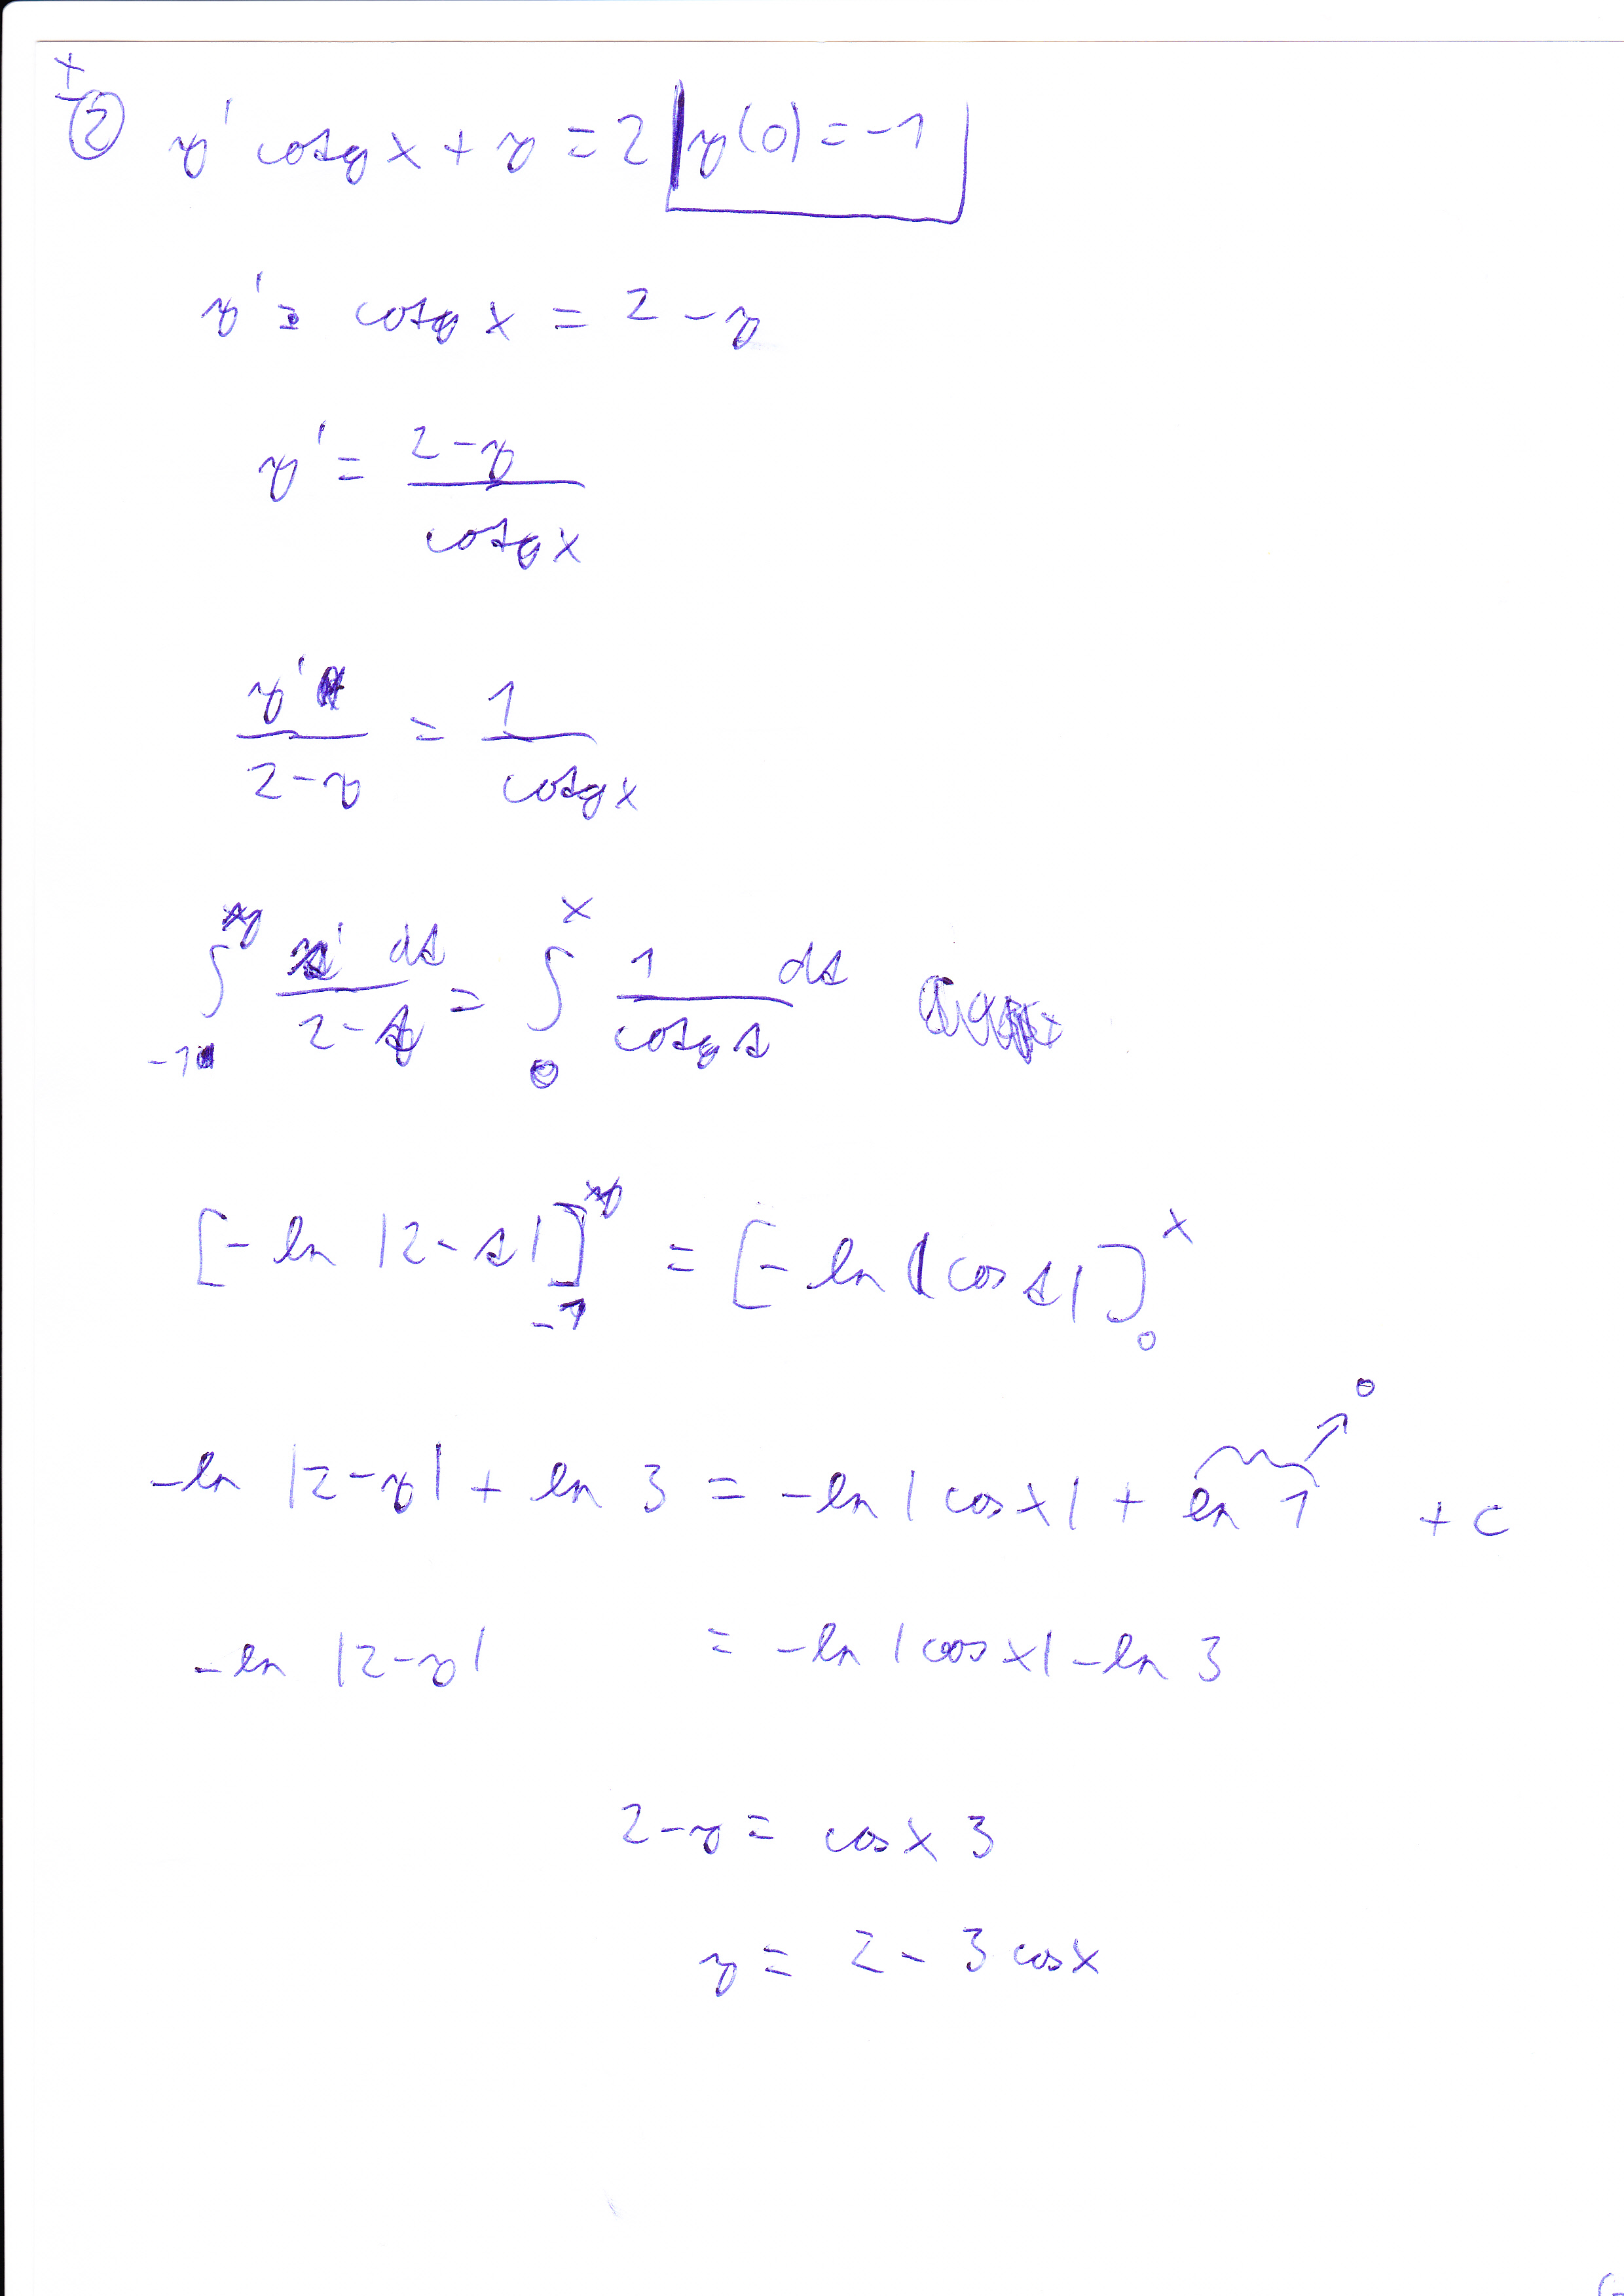 ② y' cotg x + y = 2 | y(0) = -1
y' = cotg x = 2 - y
y' = (2 - y) / (cotg x)
y' / (2 - y) = 1 / (cotg x)
∫_{-1}^{y} ds / (2 - s) = ∫_0^x 1 / (cotg s) ds
[- ln |2 - s|]_{-1}^{y} = [- ln |cos s|]_0^x
0
- ln |2 - y| + ln 3 = - ln |cos x| + ln 1 + c
- ln |2 - y| = - ln |cos x| - ln 3
2 - y = cos x 3
y = 2 - 3 cos x